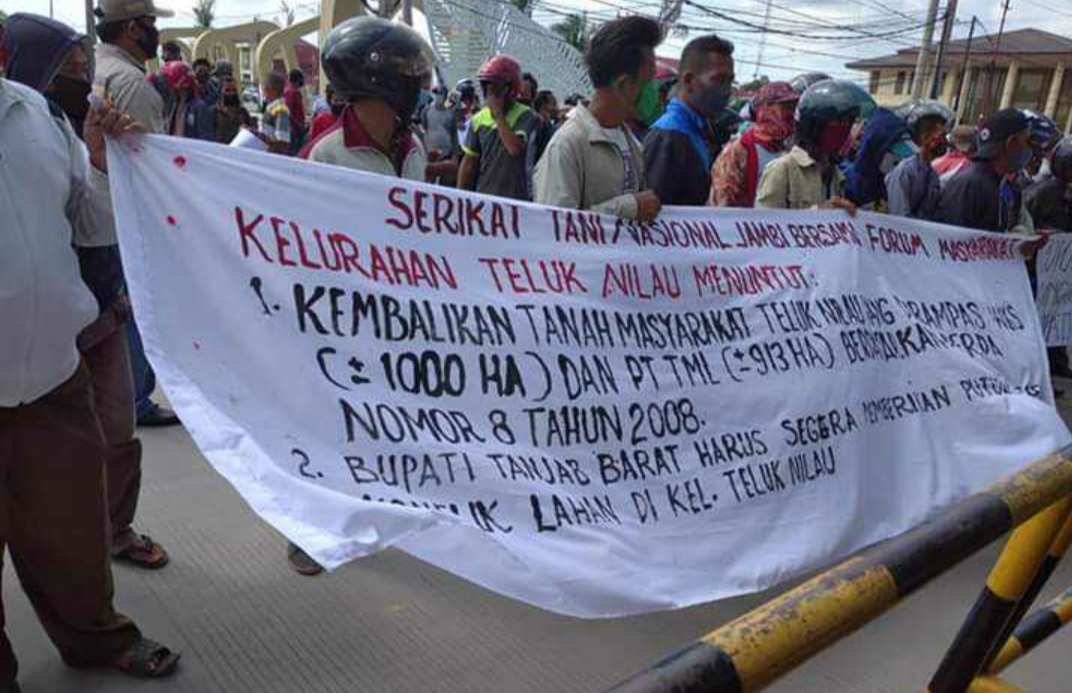 SERIKAT TANI NASIONAL JAMBI BERSAMA FORUM MASYARAKAT
KELURAHAN TELUK NILAU MENUNTUT:
1. KEMBALIKAN TANAH MASYARAKAT TELUK NILAU YANG DIRAMPAS WKS
(± 1000 HA) DAN PT TML (± 913 HA) PERDA
NOMOR 8 TAHUN 2008.
2. BUPATI TANJAB BARAT HARUS SEGERA
KONFLIK LAHAN DI KEL. TELUK NILAU